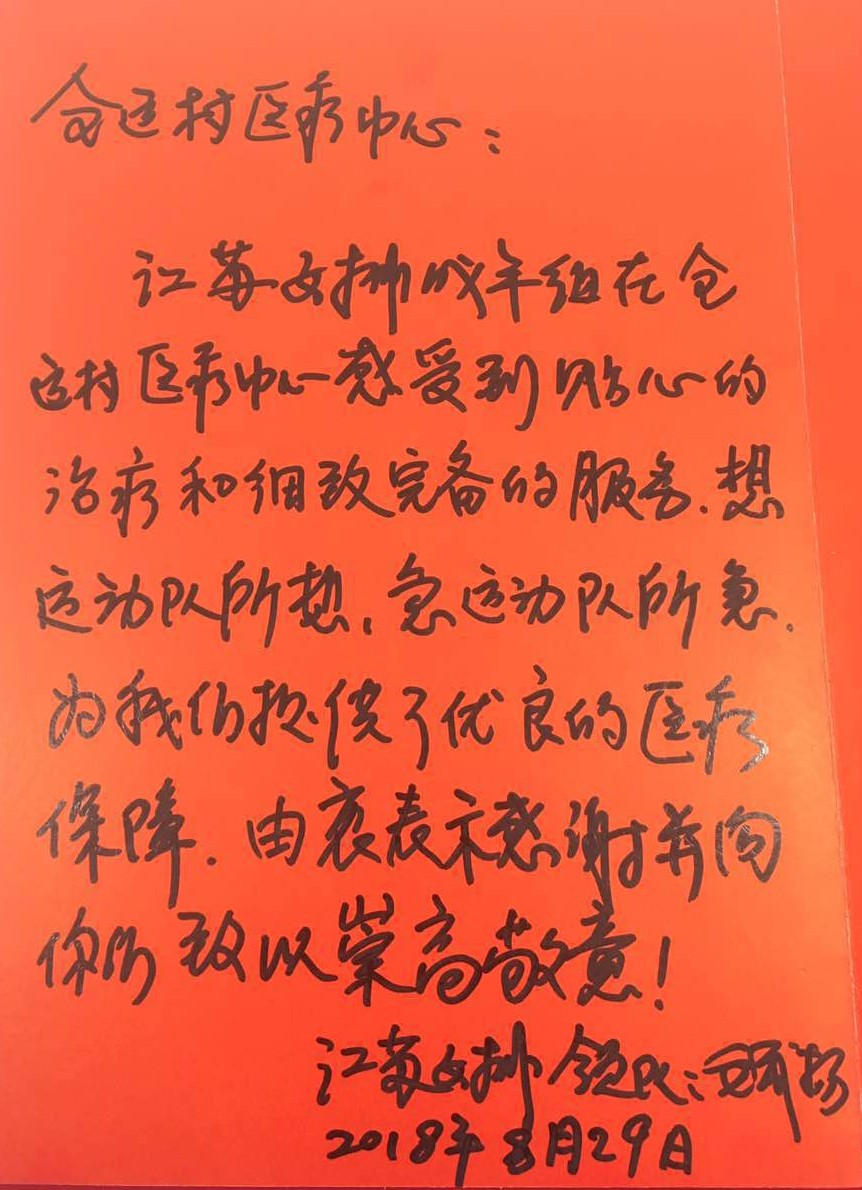 全运村医疗中心：
江苏女排成年组在全
运村医疗中心感受到贴心的
治疗和细致完备的服务.想
运动队所想,急运动队所急.
为我们提供了优良的医疗
保障.由衷表示感谢并向
你们致以崇高敬意！
江苏女排领队：
2018年8月29日